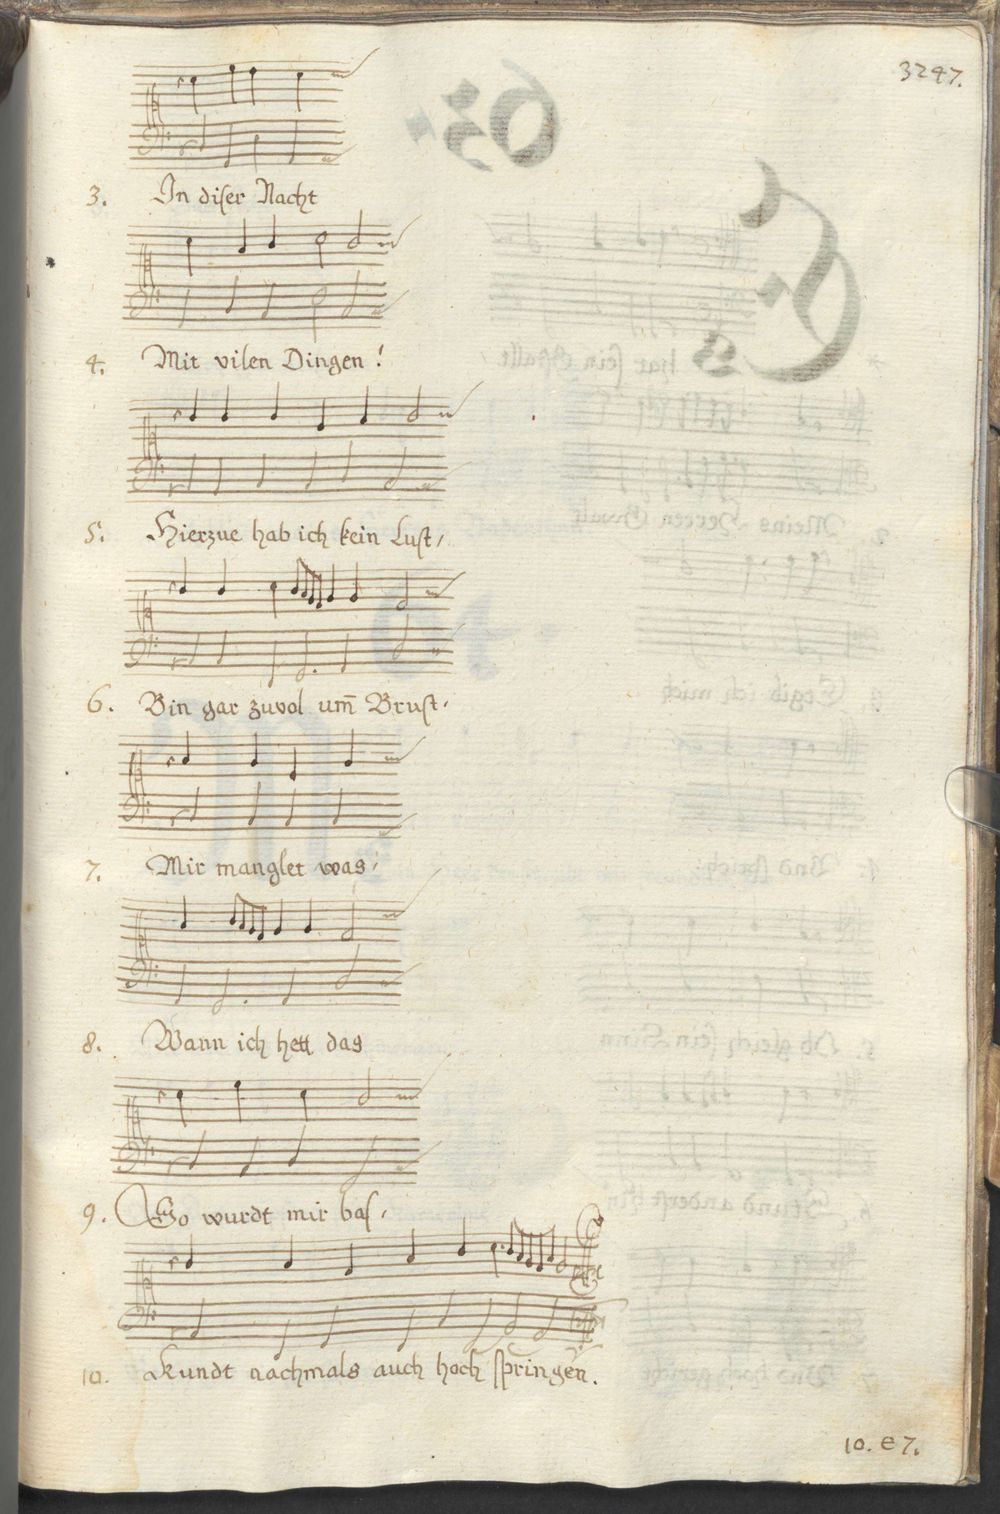 3247.
3. In diser Nacht
4. Mit vilen Dingen !
5. Hierzue hab ich kein Lust,
6. Bin gar zuvol um̄ Brust,
7. Mir manglet was,
8. Wann ich hett das
9. So wurdt mir bas,
10. Kundt nachmals auch hoch springen.
10. e 7.